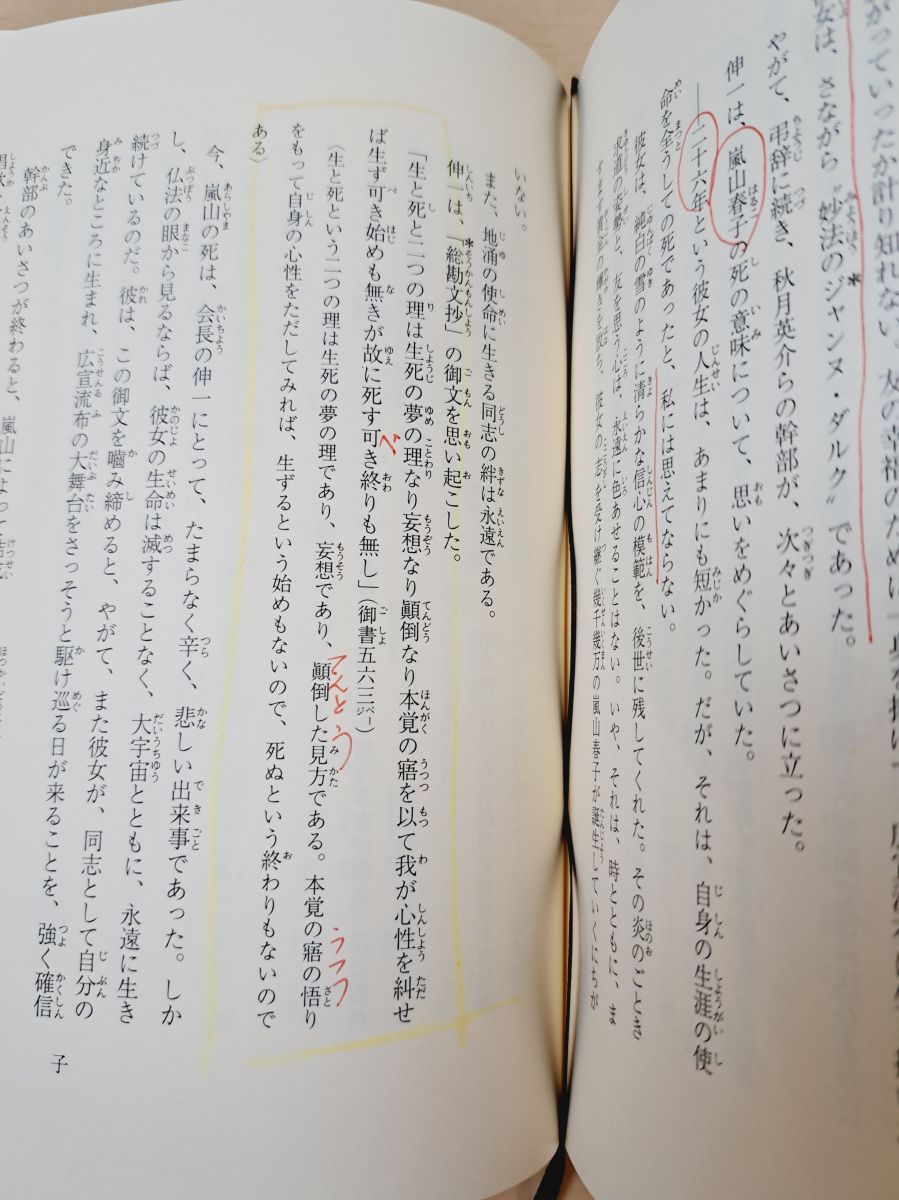 がっていったか計り知れない。友の幸福のために
女は、さながら〝妙法のジャンヌ・ダルク〟であった。
やがて、弔辞に続き、秋月英介らの幹部が、次々とあいさつに立った。
伸一は、嵐山春子の死の意味について、思いをめぐらしていた。
――二十六年という彼女の人生は、あまりにも短かった。だが、それは、自身の生涯の使
命を全うしての死であったと、私には思えてならない。
彼女は、純白の雪のように清らかな信心の模範を、後世に残してくれた。その炎のごとき
求道の姿勢と、友を思う心は、永遠に色あせることはない。いや、それは、時とともに、ま
すます黄金の輝きを放ち、彼女の志を受け継ぐ幾千幾万の嵐山春子が誕生していくにちが
いない。
また、地涌の使命に生きる同志の絆は永遠である。
伸一は、「総勘文抄」の御文を思い起こした。
「生と死と二つの理は生死の夢の理なり妄想なり顚倒なり本覚の寤を以て我が心性を糾せ
ば生ず可き始めも無きが故に死す可き終りも無し」(御書五六三㌻)
べ
〈生と死という二つの理は生死の夢の理であり、妄想であり、顚倒した見方である。本覚の寤の悟り
てんとう
うつつ
をもって自身の心性をただしてみれば、生ずるという始めもないので、死ぬという終わりもないので
ある〉
今、嵐山の死は、会長の伸一にとって、たまらなく辛く、悲しい出来事であった。しか
し、仏法の眼から見るならば、彼女の生命は滅することなく、大宇宙とともに、永遠に生き
続けているのだ。彼は、この御文を嚙み締めると、やがて、また彼女が、同志として自分の
身近なところに生まれ、広宣流布の大舞台をさっそうと駆け巡る日が来ることを、強く確信
できた。
幹部のあいさつが終わると、嵐山によって
子